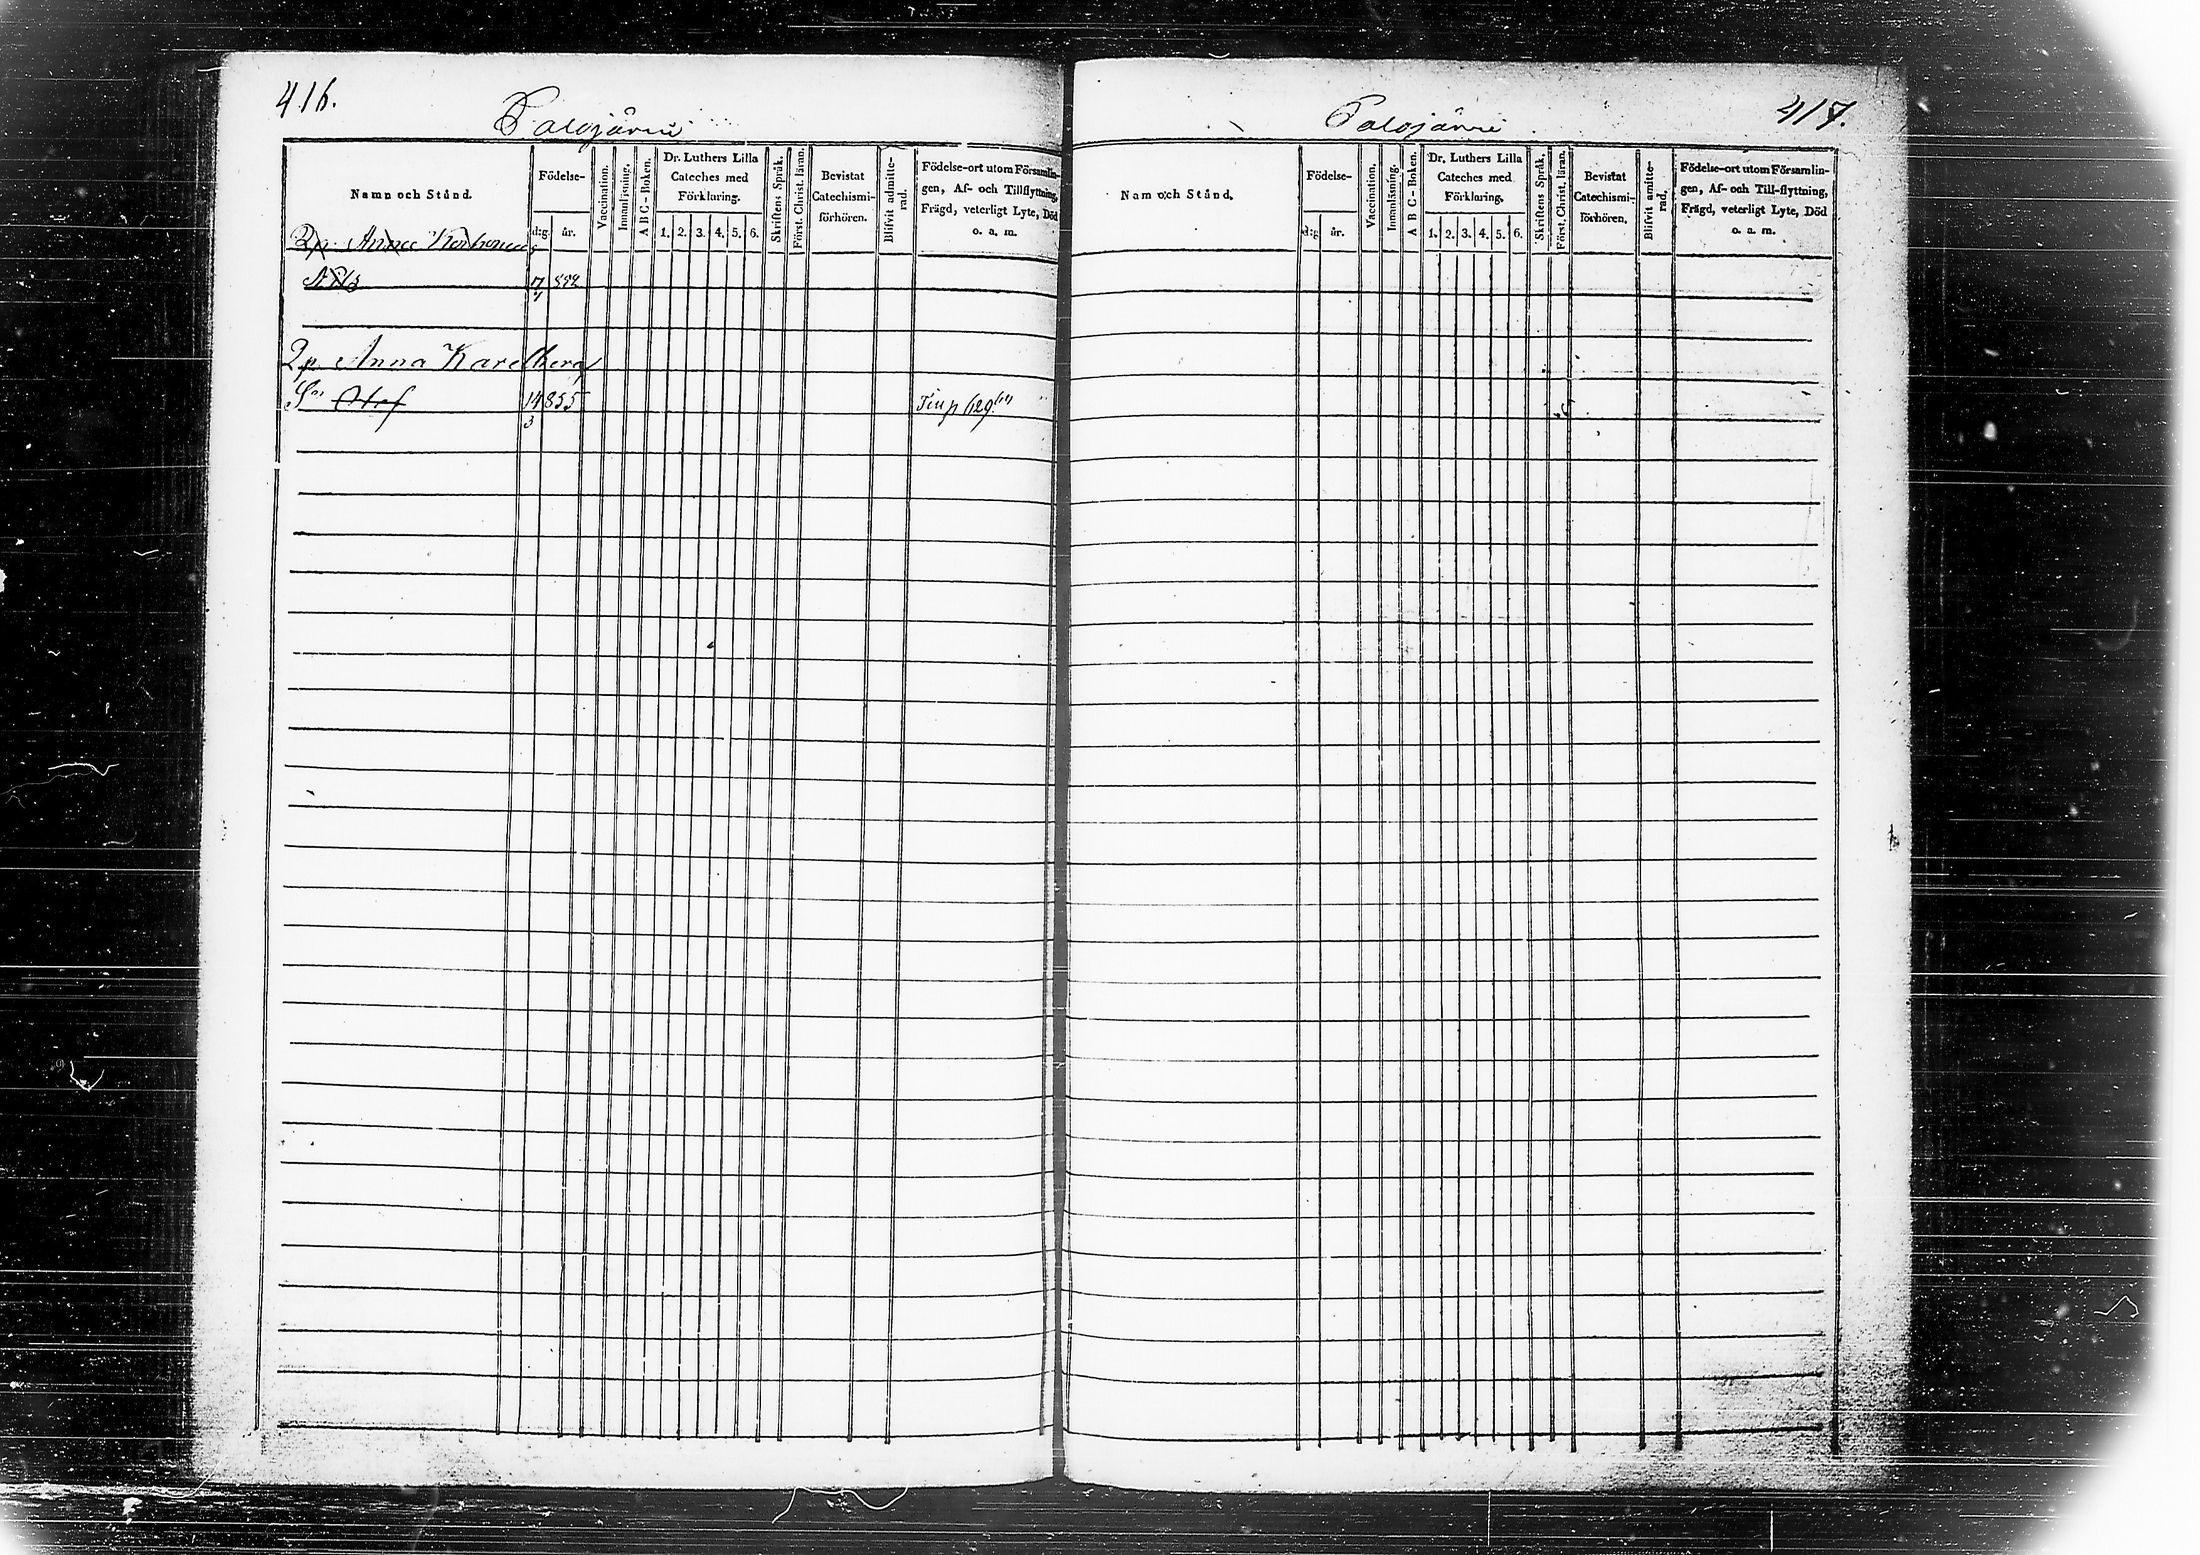 416.
Palojärvi
Namn och Stånd.
Födelse-
d:g. år.
Vaccination.
Innanläsning.
A B C - Boken.
Dr. Luthers Lilla
Cateches med
Förklaring.
1. 2. 3. 4. 5. 6.
Skriftens Språk.
Först. Christ. läran.
Bevistat
Catechismi-
förhören.
Blifvit admitte-
rad.
Födelse-ort utom Försanlin-
gen, Af- och Tillflyttning,
Frägd, veterligt Lyte, Död
o. a. m.
Qp. Anna
Nils 7/7
Qp. Anna Karelberg
Sn Olof 14/3 855 p 629
417.
Palojärvi
Namn och Stånd.
Födelse-
d:g år.
Vaccination.
Innanläsning.
A B C - Boken.
Dr. Luthers Lilla
Cateches med
Förklaring.
1. 2. 3. 4. 5. 6.
Skriftens Språk.
Först. Christ. läran.
Bevistat
Catechismi-
förhören.
Blifvit admitte-
rad.
Födelse-ort utom Församlin-
gen, Af- och Till-flyttning,
Frägd, veterligt Lyte, Död
o. a. m.